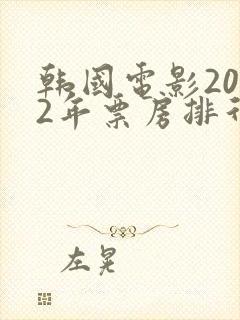 韩國電影20
2年票房排行
左晃